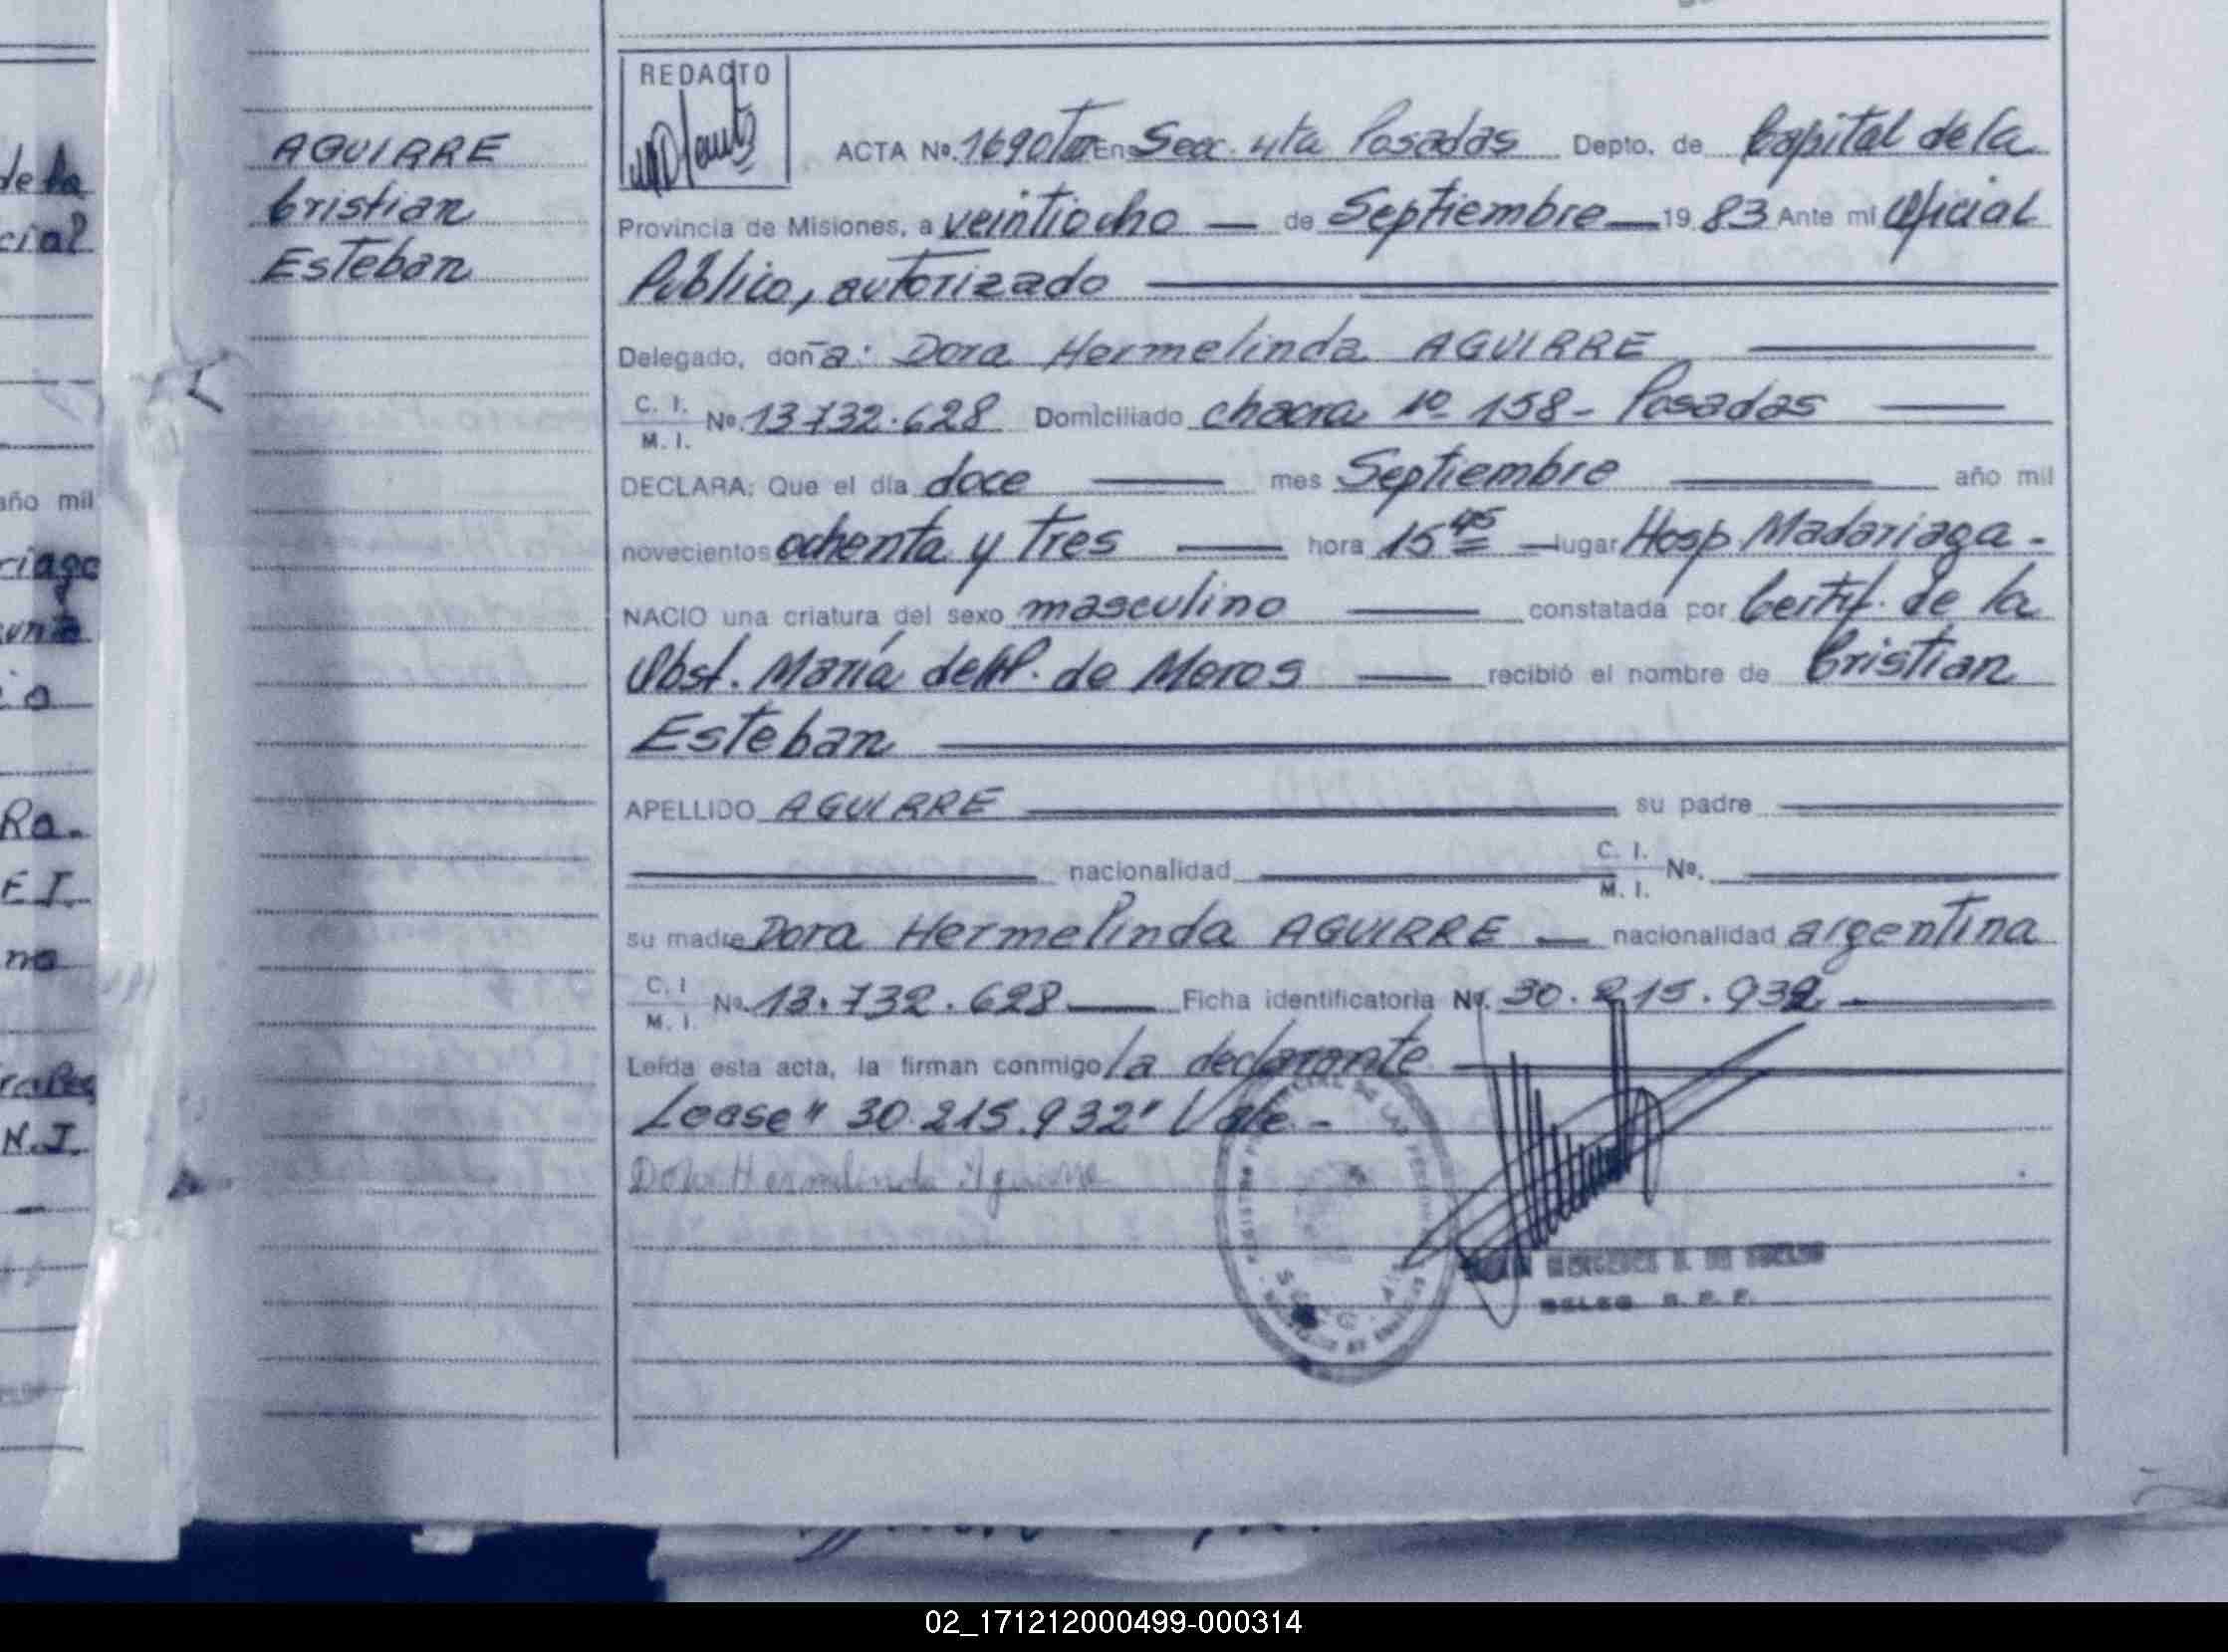 AGUIRRE
Cristian
Esteban
REDACTO
ACTA No. 1690 En Secc. 4ta Posadas Depto. de Capital de la
Provincia de Misiones, a veintiocho de Septiembre 19 83 Ante mi Oficial
Público, autorizado
Delegado, doña: Dora Hermelinda AGUIRRE
C. I. M. I. No. 13732.628 Domiciliado chacra no 158 - Posadas
DECLARA: Que el día doce mes Septiembre año mil
novecientos ochenta y tres hora 15 45 lugar Hosp. Madariaga -
NACIO una criatura del sexo masculino constatada por Certif. de la
Obst. María del de Meros recibió el nombre de Cristian
Esteban
APELLIDO AGUIRRE su padre
nacionalidad C. I. M. I. No.
su madre Dora Hermelinda AGUIRRE nacionalidad argentina
C. I M. I. No. 13.732.628 Ficha identificatoria No. 30.215.932
Leída esta acta, la firman conmigo la declarante
Lease "30.215.932" Vale -
Dora Hermelinda Aguirre
02_171212000499-000314